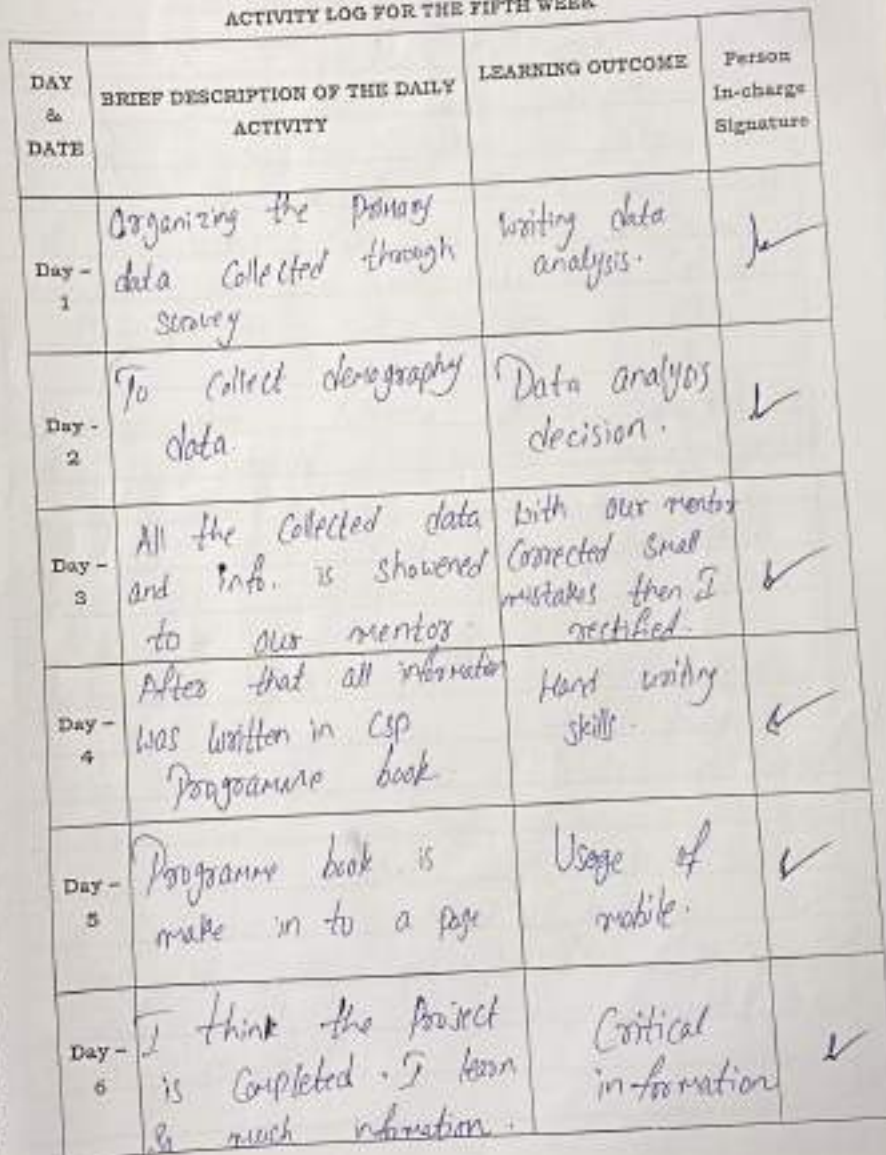 ACTIVITY LOG FOR THE FIFTH WEEK
DAY
&
DATE
BRIEF DESCRIPTION OF THE DAILY
ACTIVITY
LEARNING OUTCOME
Person
In-charge
Signature
Day -
1
Organizing the Primary
data Collected through
survey
writing data
analysis.
Day -
2
To Collect demography
data.
Data analysis
decision.
Day -
3
All the Collected data
and info. is showened
to our mentor.
with our mentor
Corrected Small
mistakes then I
rectified.
Day -
4
After that all information
was written in CSP
Programme book.
Hand writing
skills.
Day -
5
Programme book is
make in to a page
Usage of
mobile.
Day -
6
I think the Project
is Completed. I learn
much information.
Critical
information